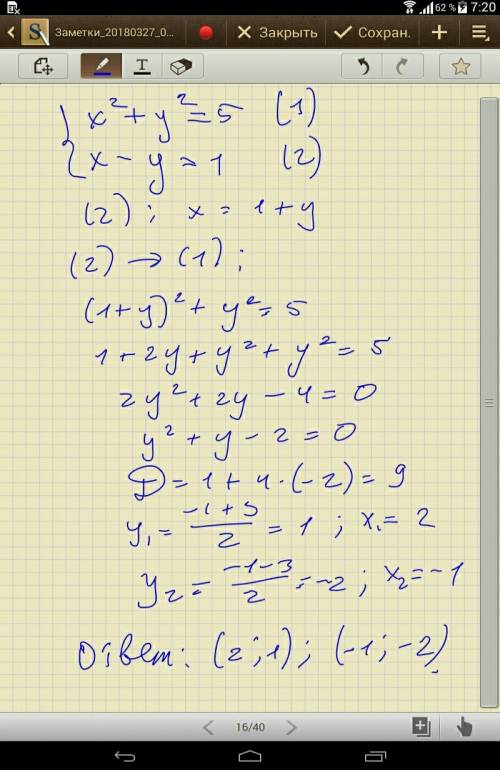 62 % 7:20
Заметки_20180327_0... Закрыть Сохран.
T
{ x² + y² = 5 (1)
x - y = 1 (2)
(2); x = 1 + y
(2) → (1);
(1+y)² + y² = 5
1 + 2y + y² + y² = 5
2y² + 2y - 4 = 0
y² + y - 2 = 0
D = 1 + 4·(-2) = 9
y₁ = (-1+3)/2 = 1; x₁ = 2
y₂ = (-1-3)/2 = -2; x₂ = -1
Ответ: (2;1); (-1;-2)
16/40